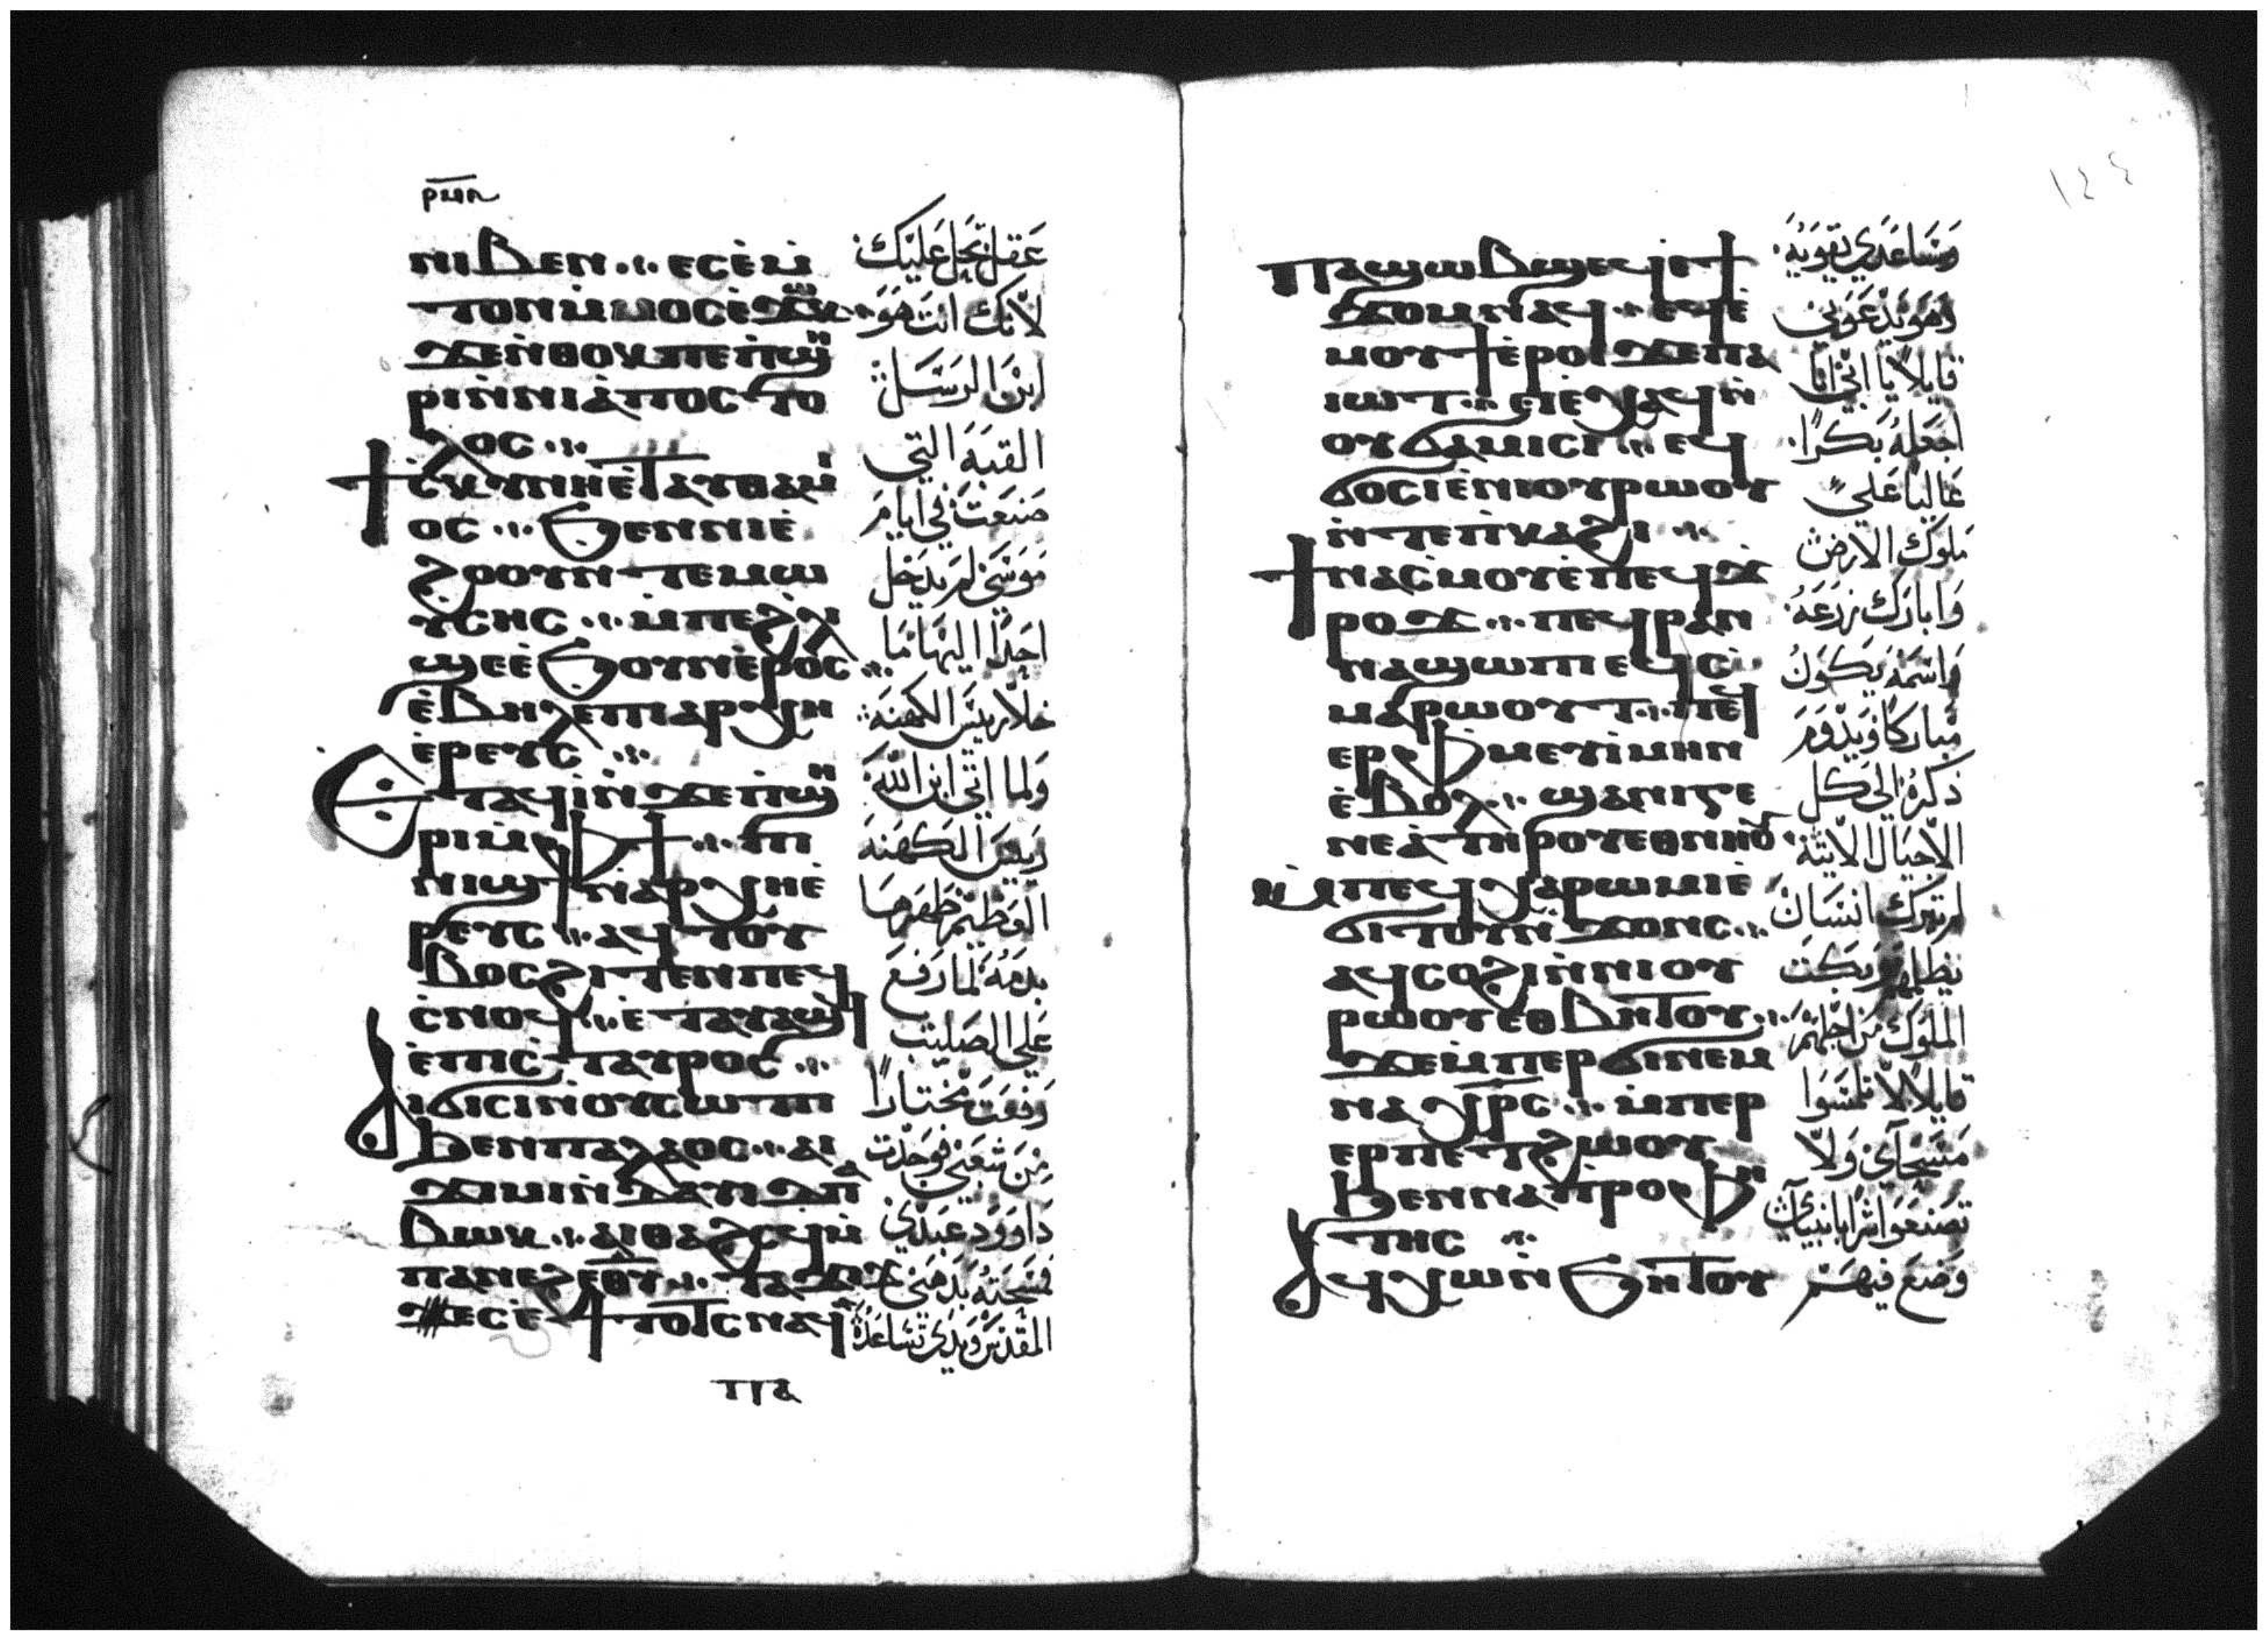 ⲛⲓⲃⲉⲛ ⲉⲥⲉ̀ⲙ̀
ⲧⲟⲛ ⲙ̀ⲙⲟⲥ ⲉ̀ϫⲱⲕ
ϫⲉ ⲛ̀ⲑⲟⲕ ⲡⲉ ⲡ̀ϣⲏ
ⲣⲓ ⲛ̀ⲛⲓⲁ̀ⲡⲟⲥⲧⲟ
ⲗⲟⲥ
ϯⲥ̀ⲕⲩⲛⲏ ⲉ̀ⲧⲁⲩⲑⲁⲙⲓ
ⲟⲥ ϧⲉⲛ ⲛⲓⲉ̀
ϩⲟⲟⲩ ⲛ̀ⲧⲉ ⲙⲱ
ⲩⲥⲏⲥ ⲙ̀ⲡⲉ ϩ̀ⲗⲓ
ϣⲉ ⲉ̀ϧⲟⲩⲛ ⲉ̀ⲣⲟⲥ
ⲉ̀ⲃⲏⲗ ⲉ̀ⲡⲓⲁⲣⲭⲏ
ⲉ̀ⲣⲉⲩⲥ
ⲉⲧⲁϥⲓ̀ ⲛ̀ϫⲉ ⲡ̀ϣⲏ
ⲣⲓ ⲙ̀ⲫϯ ⲡⲓ
ⲛⲓϣϯ ⲛ̀ⲁⲣⲭⲏⲉ̀
ⲣⲉⲩⲥ ⲁϥⲧⲟⲩ
ⲃⲟⲥ ϩⲓⲧⲉⲛ ⲡⲉϥ
ⲥ̀ⲛⲟϥ ⲉ̀ⲧⲁⲩⲁϣϥ
ⲉ̀ⲡⲓⲥ̀ⲧⲁⲩⲣⲟⲥ
ⲁⲓϭⲓⲥⲓ ⲛ̀ⲟⲩⲥⲱⲧⲡ
ϧⲉⲛ ⲡⲁⲗⲁⲟⲥ ⲁⲓ
ϫⲓⲙⲓ ⲛ̀ⲇⲁⲩⲓⲇ ⲡⲁ
ⲃⲱⲕ ⲁⲓⲑⲁϩⲥϥ ⲙ̀
ⲡⲁⲛⲉϩ ⲉⲑⲩ
ϫⲉ ⲥⲉ̀ϯⲧⲟⲧⲥ ⲛⲁϥ
عقل تحل عليك
لانك انت هو
ابن الرسل
القبة التي
صنعت في ايام
موسى لم يدخل
احدا اليها ما
خلا رييس الكهنة
ولما اتى ابن الله
رييس الكهنة
العظيم طهرها
بدمه لما رفع
على الصليب
رفعت مختارا
من شعبي فوجدت
داوود عبدي
فمسحته بدهني
المقدس ويدي تساعده
ⲡⲁϣⲱⲃϣ ⲉϥⲉ̀ϯ
ϫⲟⲙ ⲛⲁϥ ⲉϥⲉ̀
ⲙⲟⲩϯ ⲉ̀ⲣⲟⲓ ϫⲉ ⲡⲁ
ⲓⲱⲧ ⲉⲓⲉ̀ⲭⲁϥ ⲛ̀
ⲟⲩϭⲁⲙⲓⲥⲓ ⲉϥ
ϭⲟⲥⲓ ⲉ̀ⲛⲓⲟⲩⲣⲱⲟⲩ
ⲛ̀ⲧⲉ ⲡ̀ⲕⲁϩⲓ
ϯⲛⲁⲥ̀ⲙⲟⲩ ⲉ̀ⲡⲉϥϫ̀
ⲣⲟϫ ⲡⲉϥⲣⲁⲛ
ⲛⲁϣⲱⲡⲓ ⲉϥⲥ̀
ⲙⲁⲣⲱⲟⲩⲧ ⲡⲉϥ
ⲉⲣⲫ̀ⲙⲉⲩⲓ̀ ⲙⲏⲛ
ⲉ̀ⲃⲟⲗ ϣⲁ ⲛⲓⲅⲉ
ⲛⲉⲁ̀ ⲧⲏⲣⲟⲩ ⲉⲑⲛⲏⲟⲩ
ⲙ̀ⲡⲉϥⲭⲁ ⲣⲱⲙⲓ ⲉ̀
ϭⲓⲧⲟⲩ ⲛ̀ϫⲟⲛⲥ
ⲁϥⲥⲟϩⲓ ⲛ̀ⲛⲓⲟⲩ
ⲣⲱⲟⲩ ⲉⲑⲃⲏⲧⲟⲩ
ϫⲉ ⲙ̀ⲡⲉⲣϭⲓ ⲛⲉⲙ
ⲛⲁⲭⲣⲥ ⲙ̀ⲡⲉⲣ
ⲉⲣⲡⲉⲧϩⲱⲟⲩ
ϧⲉⲛ ⲛⲁⲡⲣⲟⲫⲏ
ⲧⲏⲥ
ⲁϥⲭⲱ ⲛ̀ϧⲏⲧⲟⲩ
وساعدي يقويه
وهو يدعوني
قايلا يا ابي انا
اجعله بكرا
عاليا على
ملوك الارض
وابارك زرعه
واسمه يكون
مباركا ويدوم
ذكره الى كل
الاجيال الاتية
لم يترك انسان
يظلمهم وبكت
الملوك من اجلهم
قايلا لا تلمسوا
مسحاي ولا
تصنعوا شرا بانبياي
وضع فيهم